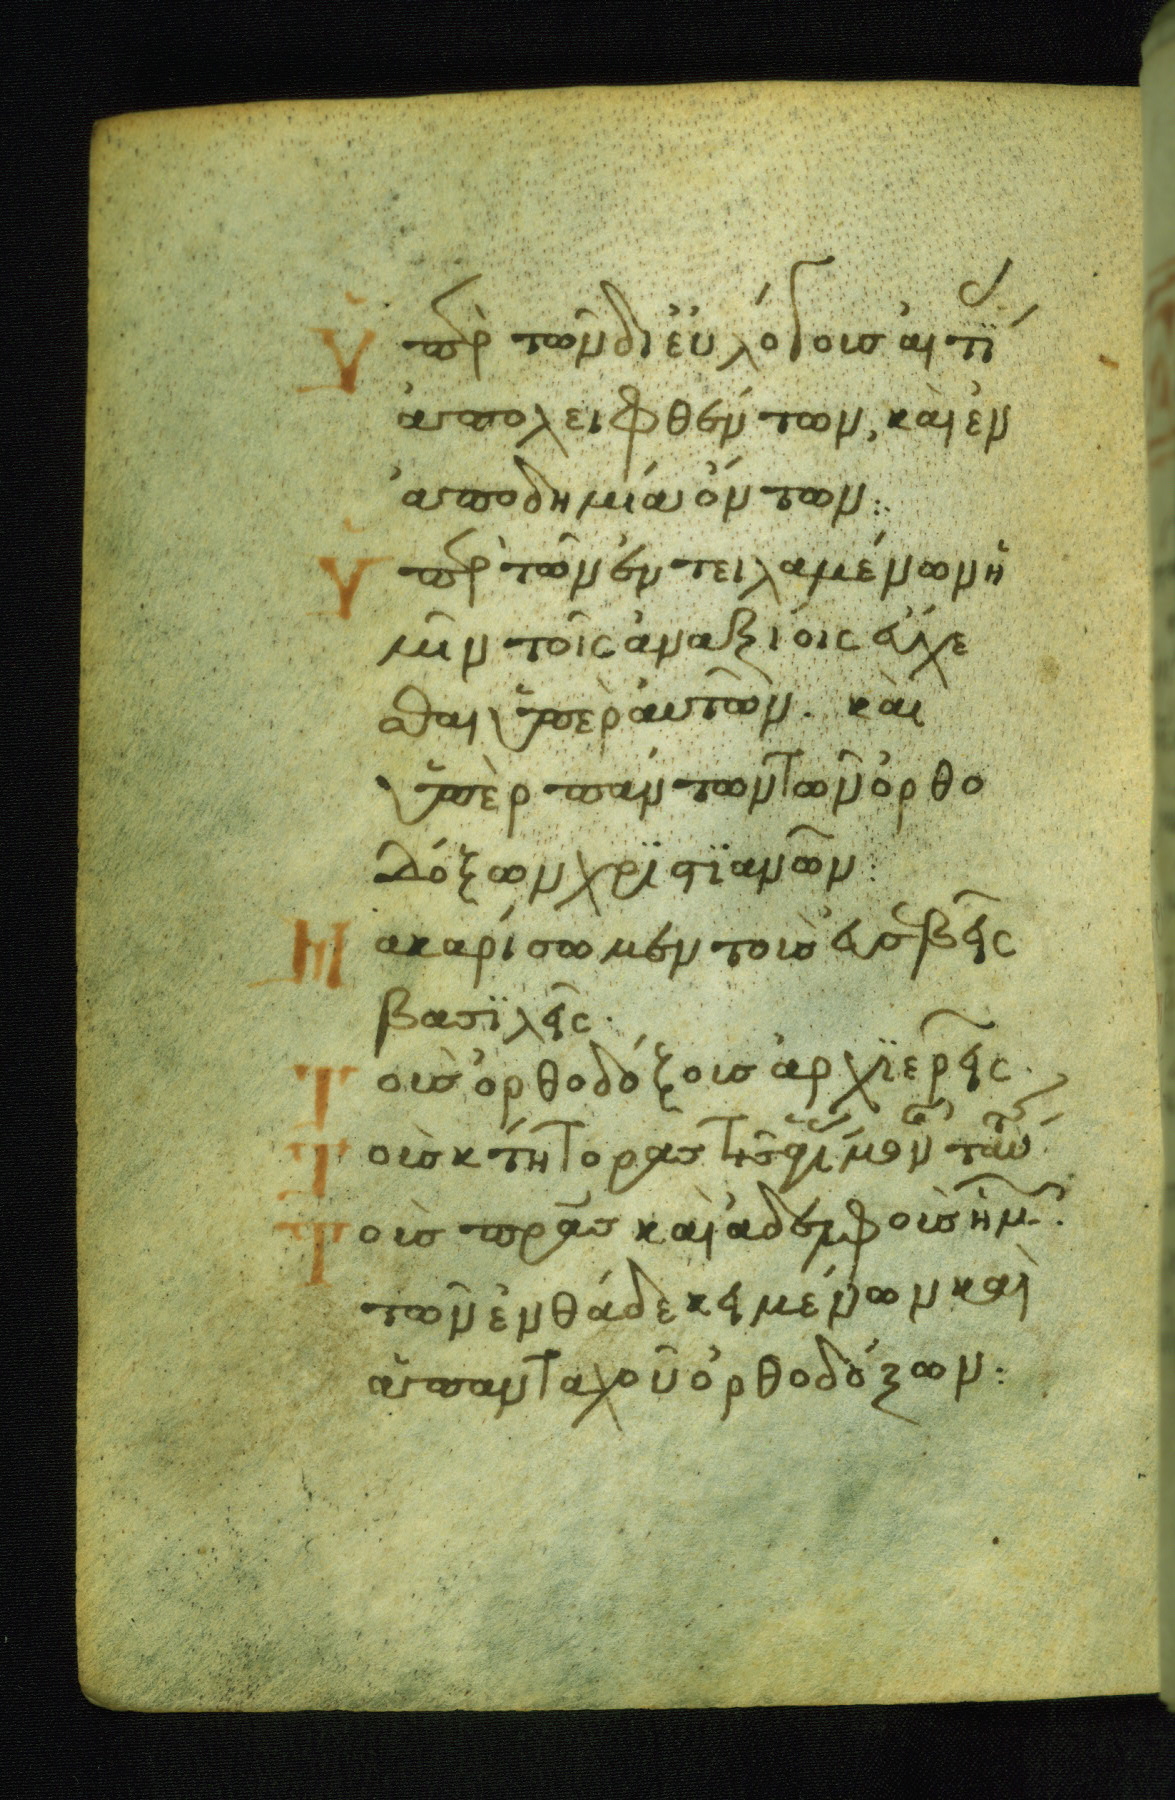 Ὑπὲρ τῶν δι εὐλόγους αἰτί
ἀπολειφθέντων, καὶ ἐν
ἀποδημία ὄντων:
Ὑπὲρ τῶν ἐντειλαμένων ἡ
μῖν τοῖς ἀναξίοις εὔχε
σθαι ὑπὲρ αὐτῶν. καὶ
ὑπὲρ πάντων τῶν ὀρθο
δόξων χρϊστϊανῶν:
Μακαρίσωμεν τοὺς εὐσεβεῖς
βασϊλεῖς.
Τοὺς ὀρθοδόξους ἀρχϊερεῖς.
Τοὺς κτήτορας τῆς μον ταύ
Τοὺς πρας καὶ ἀδελφοὺς ἡμ:
τῶν ἐνθάδε κειμένων καὶ
ἁπανταχοῦ ὀρθοδόξων: